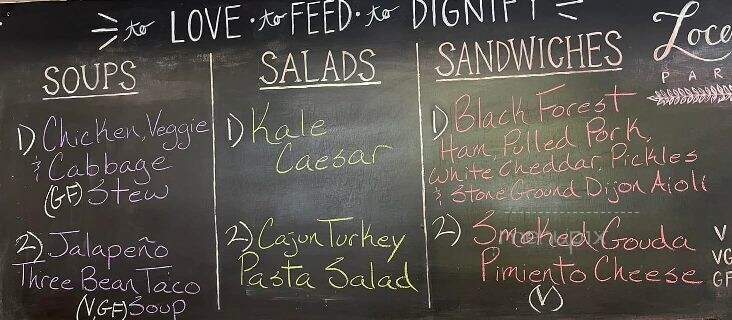 to LOVE · to FEED · to DIGNIFY
SOUPS
1) Chicken, Veggie
& Cabbage
(GF) Stew
2) Jalapeño
Three Bean Taco
(V, GF) Soup
SALADS
1) Kale
Caesar
2) Cajun Turkey
Pasta Salad
SANDWICHES
1) Black Forest
Ham, Pulled Pork,
White Cheddar, Pickles
& Stone Ground Dijon Aioli
2) Smoked Gouda
Pimiento Cheese
(V)
menupix
Loca
PAR
V
VG
GF